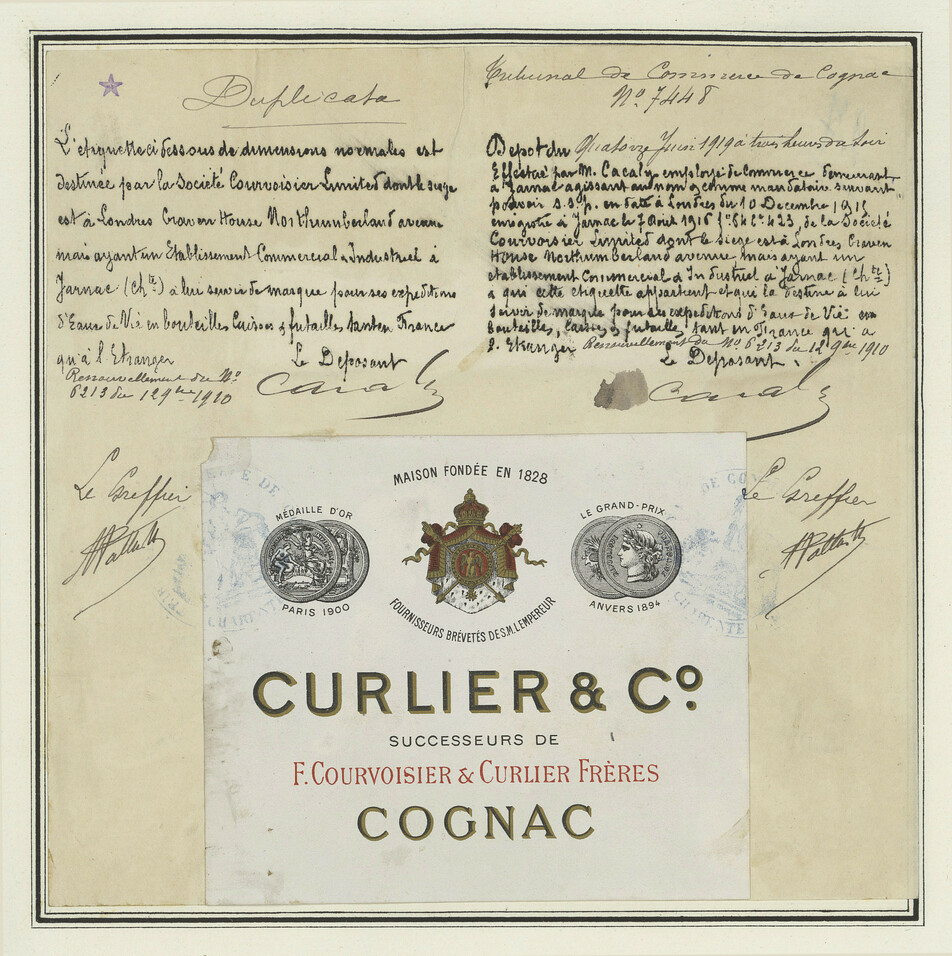 Duplicata
L'etiquette ci dessous de dimensions normales est
destinée par la Société Courvoisier Limited dont le siege
est à Londres Craven House Northumberland avenue
mais ayant un Etablissement Commercial & Industriel à
Jarnac (Chte) à lui servir de marque pour ses expeditions
d'Eaux de Vie en bouteilles Caisses & futailles tant en France
qu'à l'Etranger
Le Deposant
Renouvellement du No
6213 du 12 9bre 1910
Cacaly
Le Greffier
Tribunal de Commerce de Cognac
No 7448
Depot du Quatorze Juin 1919 à trois heures du soir
Effectué par M. Cacaly employé de Commerce demeurant
à Jarnac agissant au nom & comme mandataire suivant
pouvoir s.s.p. en date à Londres du 10 Decembre 1915
enregistré à Jarnac le 7 Aout 1916 fo 64 Co 423, de la Société
Courvoisier Limited dont le siege est à Londres Craven
House Northumberland avenue, mais ayant un
etablissement Commercial & Industriel à Jarnac (Chte)
à qui cette etiquette appartient et qui la destine à lui
servir de marque pour ses expeditions d'Eaux de Vie en
bouteilles, Caisses & futailles, tant en France qu'à
l'Etranger Renouvellement du No 6213 du 12 9bre 1910
Le Deposant
Cacaly
Le Greffier
MAISON FONDÉE EN 1828
MÉDAILLE D'OR
PARIS 1900
LE GRAND-PRIX
ANVERS 1894
FOURNISSEURS BRÉVETÉS DE S.M. L'EMPEREUR
CURLIER & Co.
SUCCESSEURS DE
F. COURVOISIER & CURLIER FRÈRES
COGNAC
CHARENTE